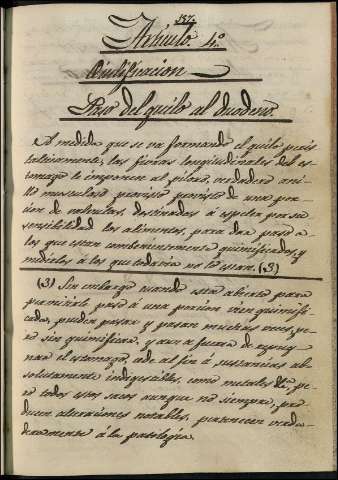 137.
Artículo. 4º
Quilificacion
Paso del quilo al duodeno.
A medida que se va formando el quilo paris
taticamente, las fibras longitudinales del es-
tomago le imponen al píloro, verdadero ani-
llo musculoso provisto de una por-
cion de valvulas, destinadas á espeler por su
sensibilidad los alimentos, para dar paso a
los que estan combenientemente quimificados, y
á los que todavia no lo estan. (3)
(3) Sin embargo cuando está abierto para
permitirle paso á una porcion bien quimifi-
cada, pueden pasar y pasan muchas veces, pe-
ro sin quimificar, y aun a fuerza de
nar el estomago, cede al fin á sustancias ab-
solutamente indigestibles, como metales &c, pe-
ro todos estos casos aunque no siempre, pro-
ducen alteraciones notables, pertenecen verda-
deramente á la patología.